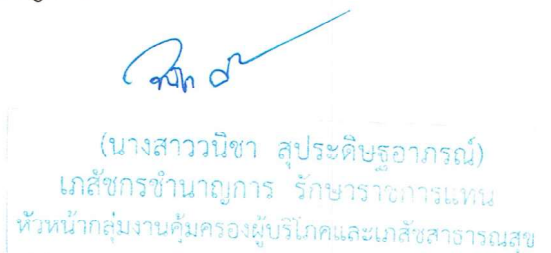 (นางสาววนิชา สุประดิษฐอาภรณ์)
เภสัชกรชำนาญการ รักษาราชการแทน
หัวหน้ากลุ่มงานคุ้มครองผู้บริโภคและเภสัชสาธารณสุข